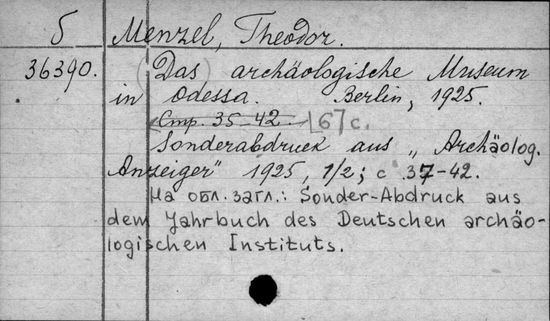 5 Menzel, Theodor.
36390. (Das) archäologische Museum
in Odessa. Berlin, 1925.
Стр. 35-42 [6] с.
Sonderabdruck aus „Archäolog.
Anzeiger" 1925, 1/2; с 37-42.
На обл. загл.: Sonder-Abdruck aus
dem Jahrbuch des Deutschen archäo-
logischen Instituts.